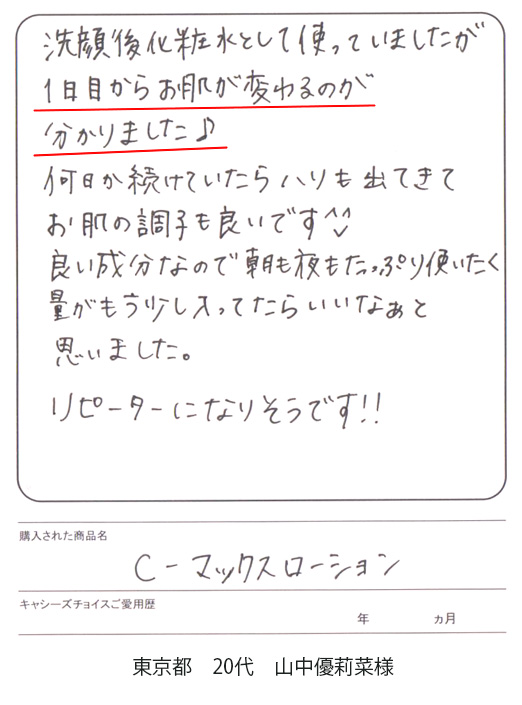 洗顔後化粧水として使っていましたが
1日目からお肌が変わるのが
分かりました♪
何日か続けていたらハリも出てきて
お肌の調子も良いです^^
良い成分なので朝も夜もたっぷり使いたく
量がもう少し入ってたらいいなぁと
思いました。
リピーターになりそうです!!
購入された商品名
C-マックスローション
キャシーズチョイスご愛用歴
年 ヵ月
東京都 20代 山中優莉菜様